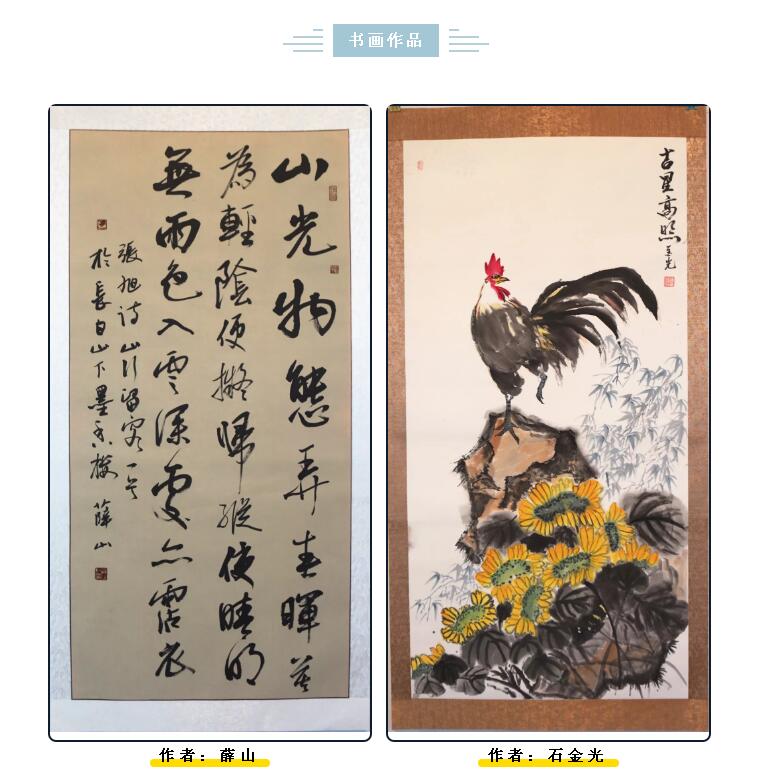 书画作品
山光物態弄春暉莫
為輕陰便擬歸縱使晴明
無雨色入雲深處亦霑衣
張旭詩山行留客一首
於長白山下墨香樓 薛山
吉星高照 金光
作者：薛山
作者：石金光